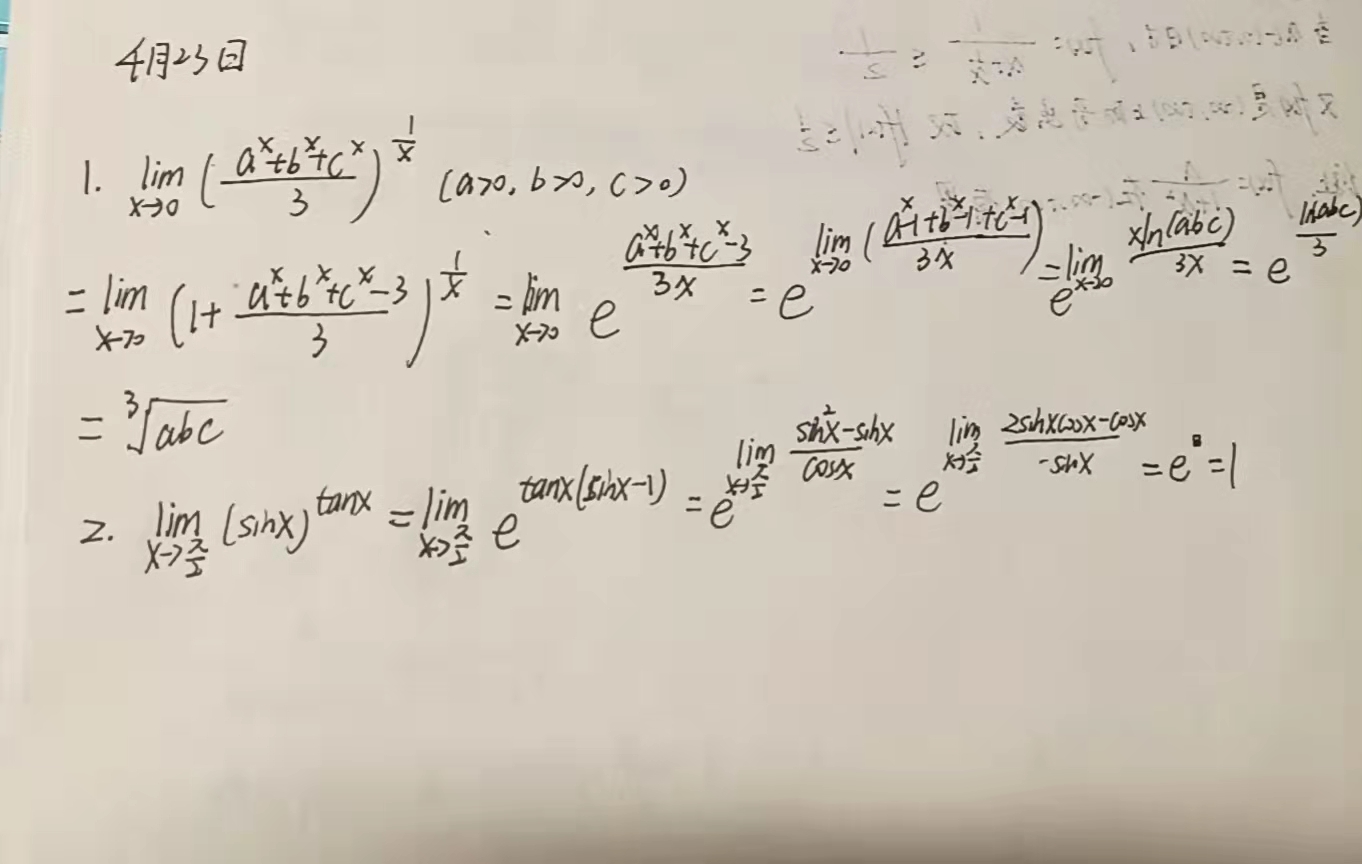 4月23日
1. lim x→0 ((a^x+b^x+c^x)/3)^(1/x) (a>0, b>0, c>0)
= lim x→0 (1+(a^x+b^x+c^x-3)/3)^(1/x) = lim x→0 e^((a^x+b^x+c^x-3)/(3x)) = e^(lim x→0 ((a^x-1+b^x-1+c^x-1)/(3x))) = e^(lim x→0 (xln(abc)/(3x))) = e^(ln(abc)/3)
= ³√abc
2. lim x→π/2 (sinx)^tanx = lim x→π/2 e^(tanx(sinx-1)) = e^(lim x→π/2 (sin²x-sinx)/cosx) = e^(lim x→π/2 (2sinxcosx-cosx)/(-sinx)) = e^0 = 1